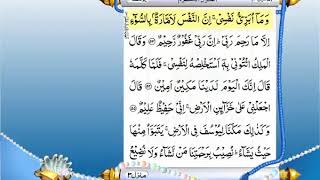 وَمَآ اُبَرِّئُ نَفْسِىْ ۚ اِنَّ النَّفْسَ لَاَمَّارَةٌۢ بِالسُّوْٓءِ
اِلَّا مَا رَحِمَ رَبِّىْ ؕ اِنَّ رَبِّىْ غَفُوْرٌ رَّحِيْمٌ ﴿۵۳﴾ وَقَالَ
الْمَلِكُ ائْتُوْنِىْ بِهٖۤ اَسْتَخْلِصْهُ لِنَفْسِىْ ۚ فَلَمَّا كَلَّمَهٗ
قَالَ اِنَّكَ الْيَوْمَ لَدَيْنَا مَكِيْنٌ اَمِيْنٌ ﴿۵۴﴾ قَالَ
اجْعَلْنِىْ عَلٰى خَزَآئِنِ الْاَرْضِ ۚ اِنِّىْ حَفِيْظٌ عَلِيْمٌ ﴿۵۵﴾
وَكَذٰلِكَ مَكَّنَّا لِيُوْسُفَ فِى الْاَرْضِ ۚ يَتَبَوَّاُ مِنْهَا
حَيْثُ يَشَآءُ ؕ نُصِيْبُ بِرَحْمَتِنَا مَنْ نَّشَآءُ وَلَا نُضِيْعُ
منزل ۳